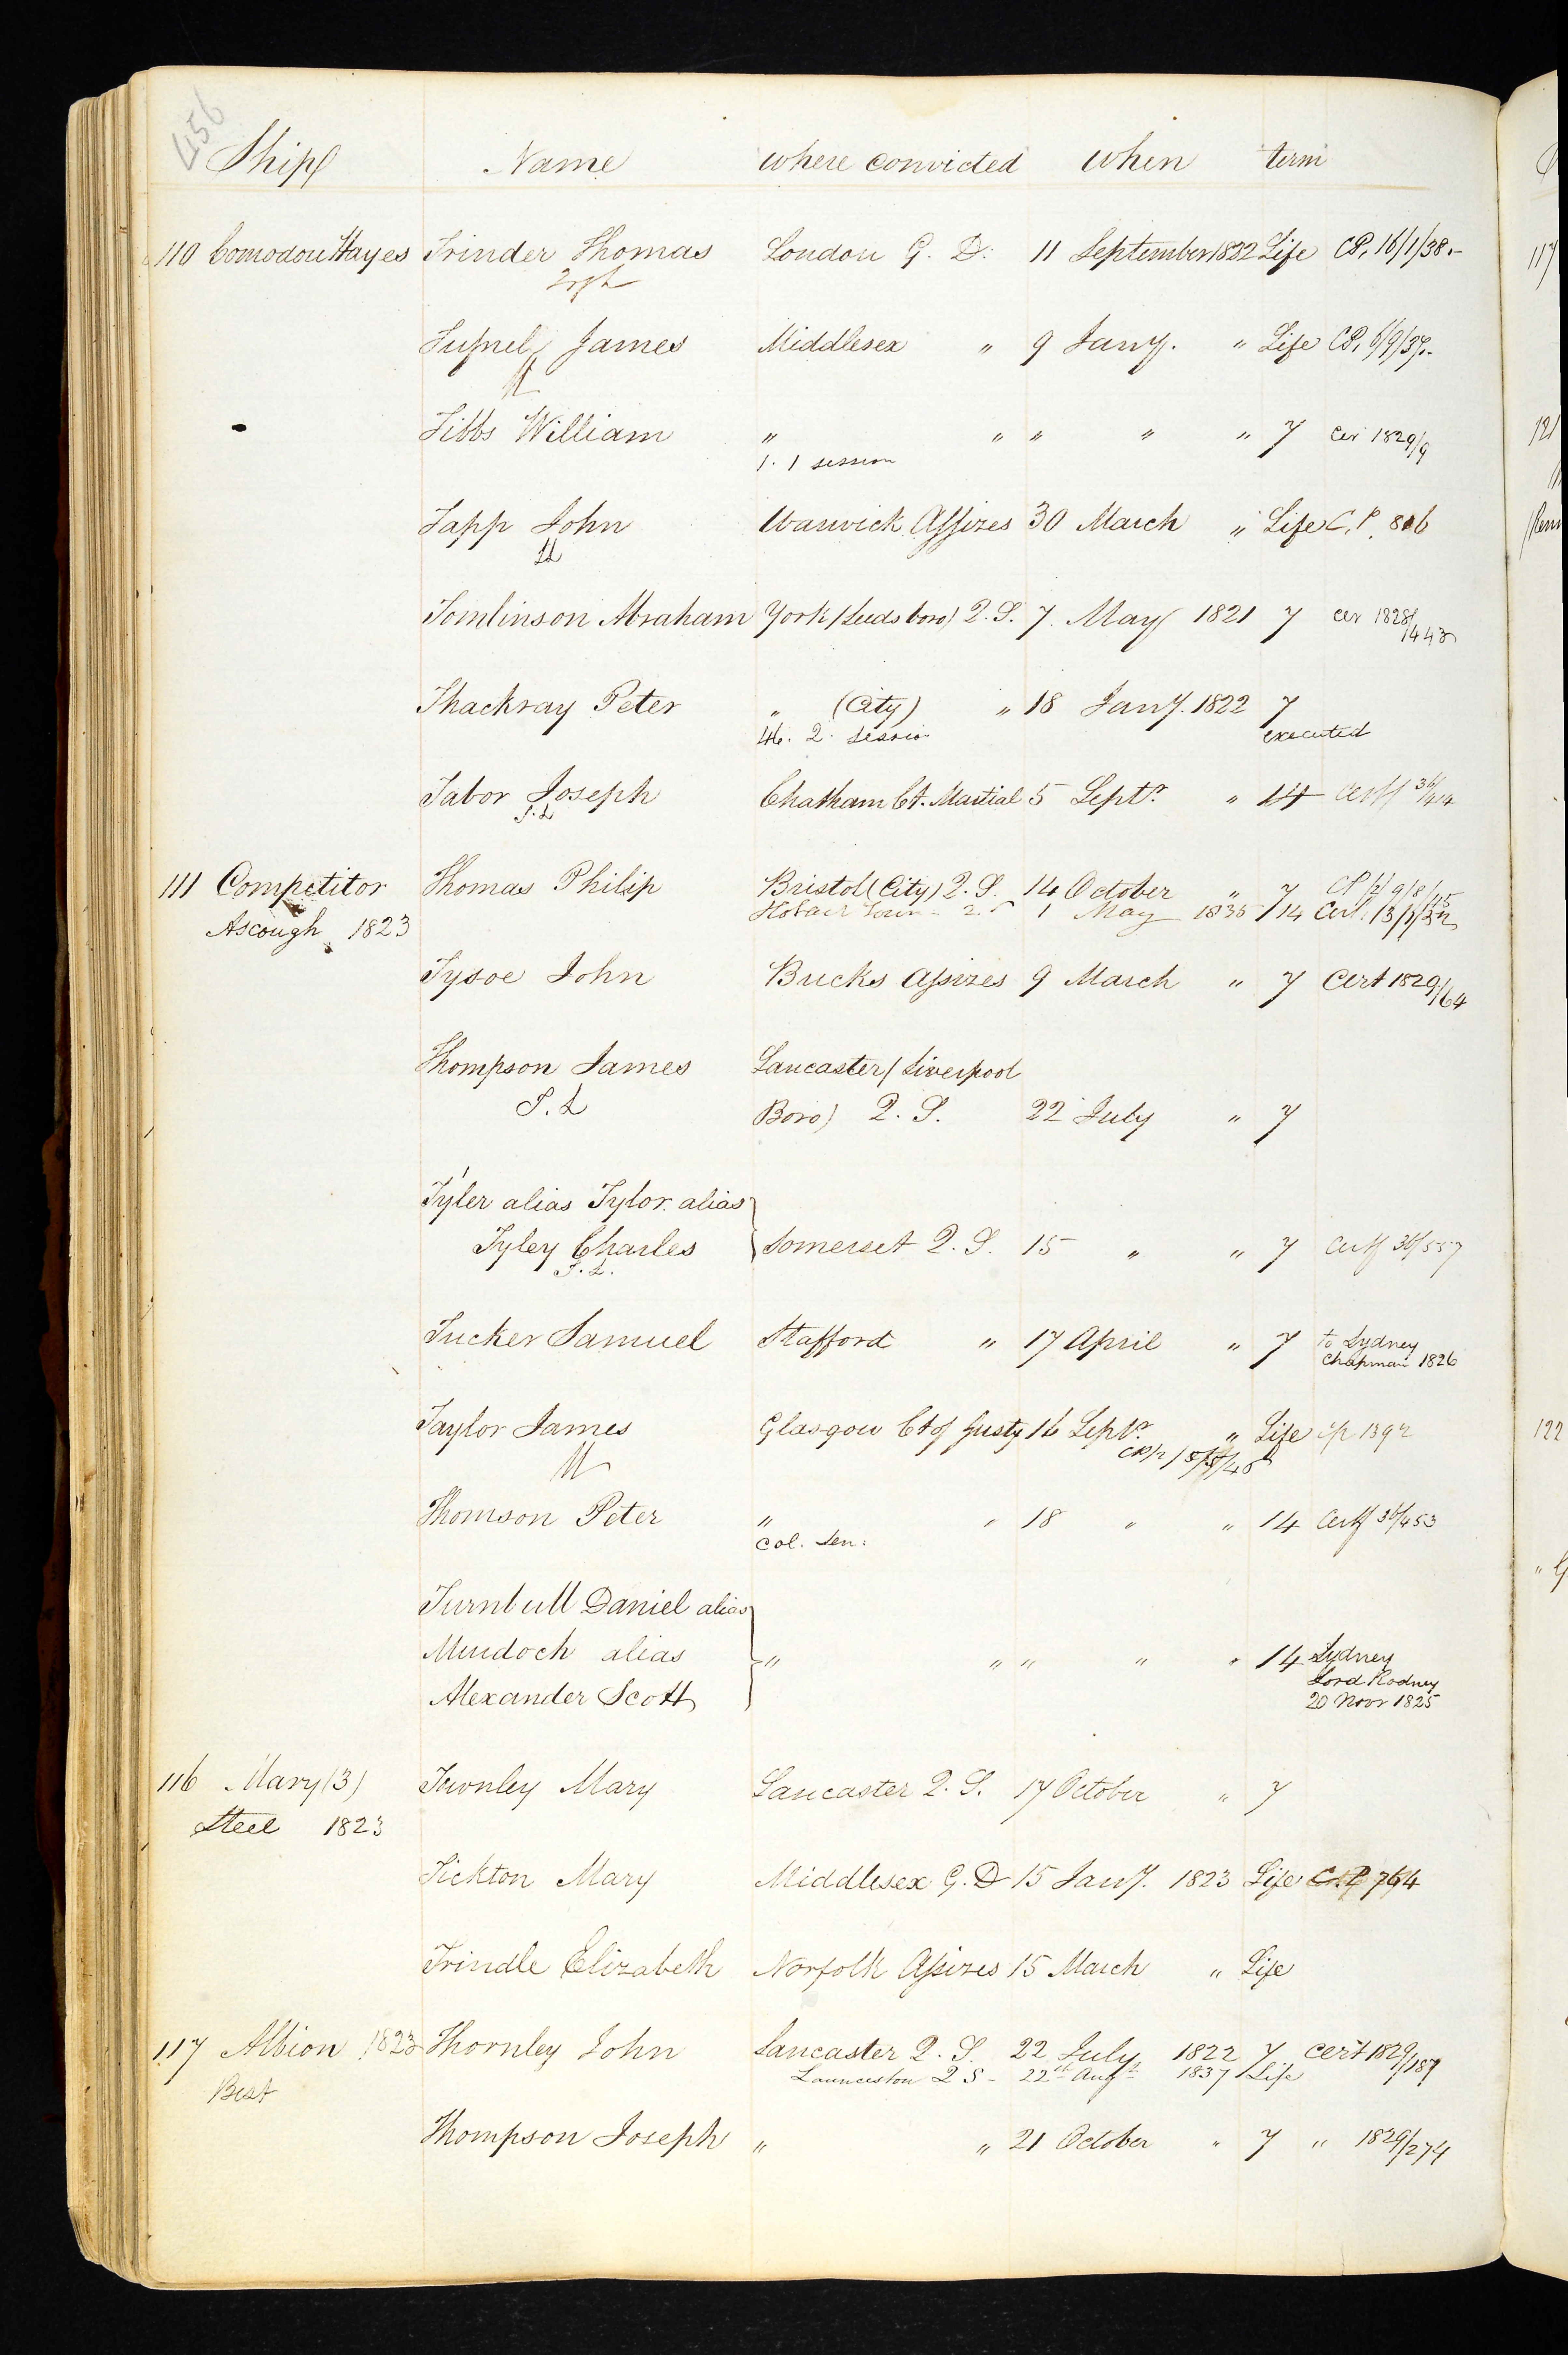 456
Ship Name where convicted when term
110 Comodore Hayes Trinder Thomas London G. D. 11 September 1822 Life CP. 16/1/38.-
Tufnel James Middlesex " 9 Jany. " Life CP. 6/9/37.-
Tibbs William " " " " " 7 Cer 1829/9
1. 1 session
Tapp John Warwick Assizes 30 March " Life C.P. 806
Tomlinson Abraham York (Leeds boro) Q.S. 7. May 1821 7 cer 1828/443
Thackray Peter " (City) " 18 Jany. 1822 7
46. 2. session executed
Tabor Joseph Chatham Ct. Martial 5 Septr. " 14 Certf 36/414
T.L
111 Competitor Thomas Philip Bristol (City) Q.S. 14 October " 7 CP 9/8/45
Ascough 1823 Hobart Town - Q.S 1 May 1835 /14 Cert.
Tysoe John Bucks Assizes 9 March " 7 Cert 1829/64
Thompson James Lancaster (Liverpool
T.L Boro) Q.S. 22 July " 7
Tyler alias Tylor alias
Tyley Charles Somerset Q.S. 15 " " 7 Certf 36/557
T.L.
Tucker Samuel Stafford " 17 April " 7 to Sydney
Chapman 1826
Taylor James Glasgow Ct of Justy 16 Septr. " Life cp 1392
Thomson Peter " " 18 " " 14 Certf 36/453
Col. Sen:
Turnbull Daniel alias
Murdoch alias " " " " " 14 Sydney
Lord Rodney
Alexander Scott 20 Novr 1825
116 Mary (3) Townley Mary Lancaster Q.S. 17 October " 7
Steel 1823
Tickton Mary Middlesex G.D 15 Jany. 1823 Life C.P 764
Trindle Elizabeth Norfolk Assizes 15 March " Life
117 Albion 1823 Thornley John Lancaster Q.S. 22 July 1822 7 Cert 1829/187
Best Launceston Q S - 22nd Augt 1837 Life
Thompson Joseph " " 21 October " 7 " 1829/274
117
121
122